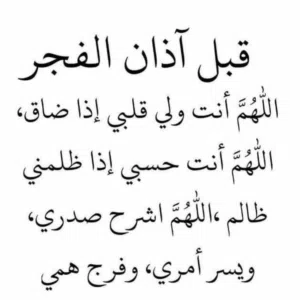 قبل آذان الفجر
اللّهُمَّ أنت ولي قلبي إذا ضاق،
اللّهُمَّ أنت حسبي إذا ظلمني
ظالم ،اللّهُمَّ اشرح صدري،
ويسر أمري، وفرج همي